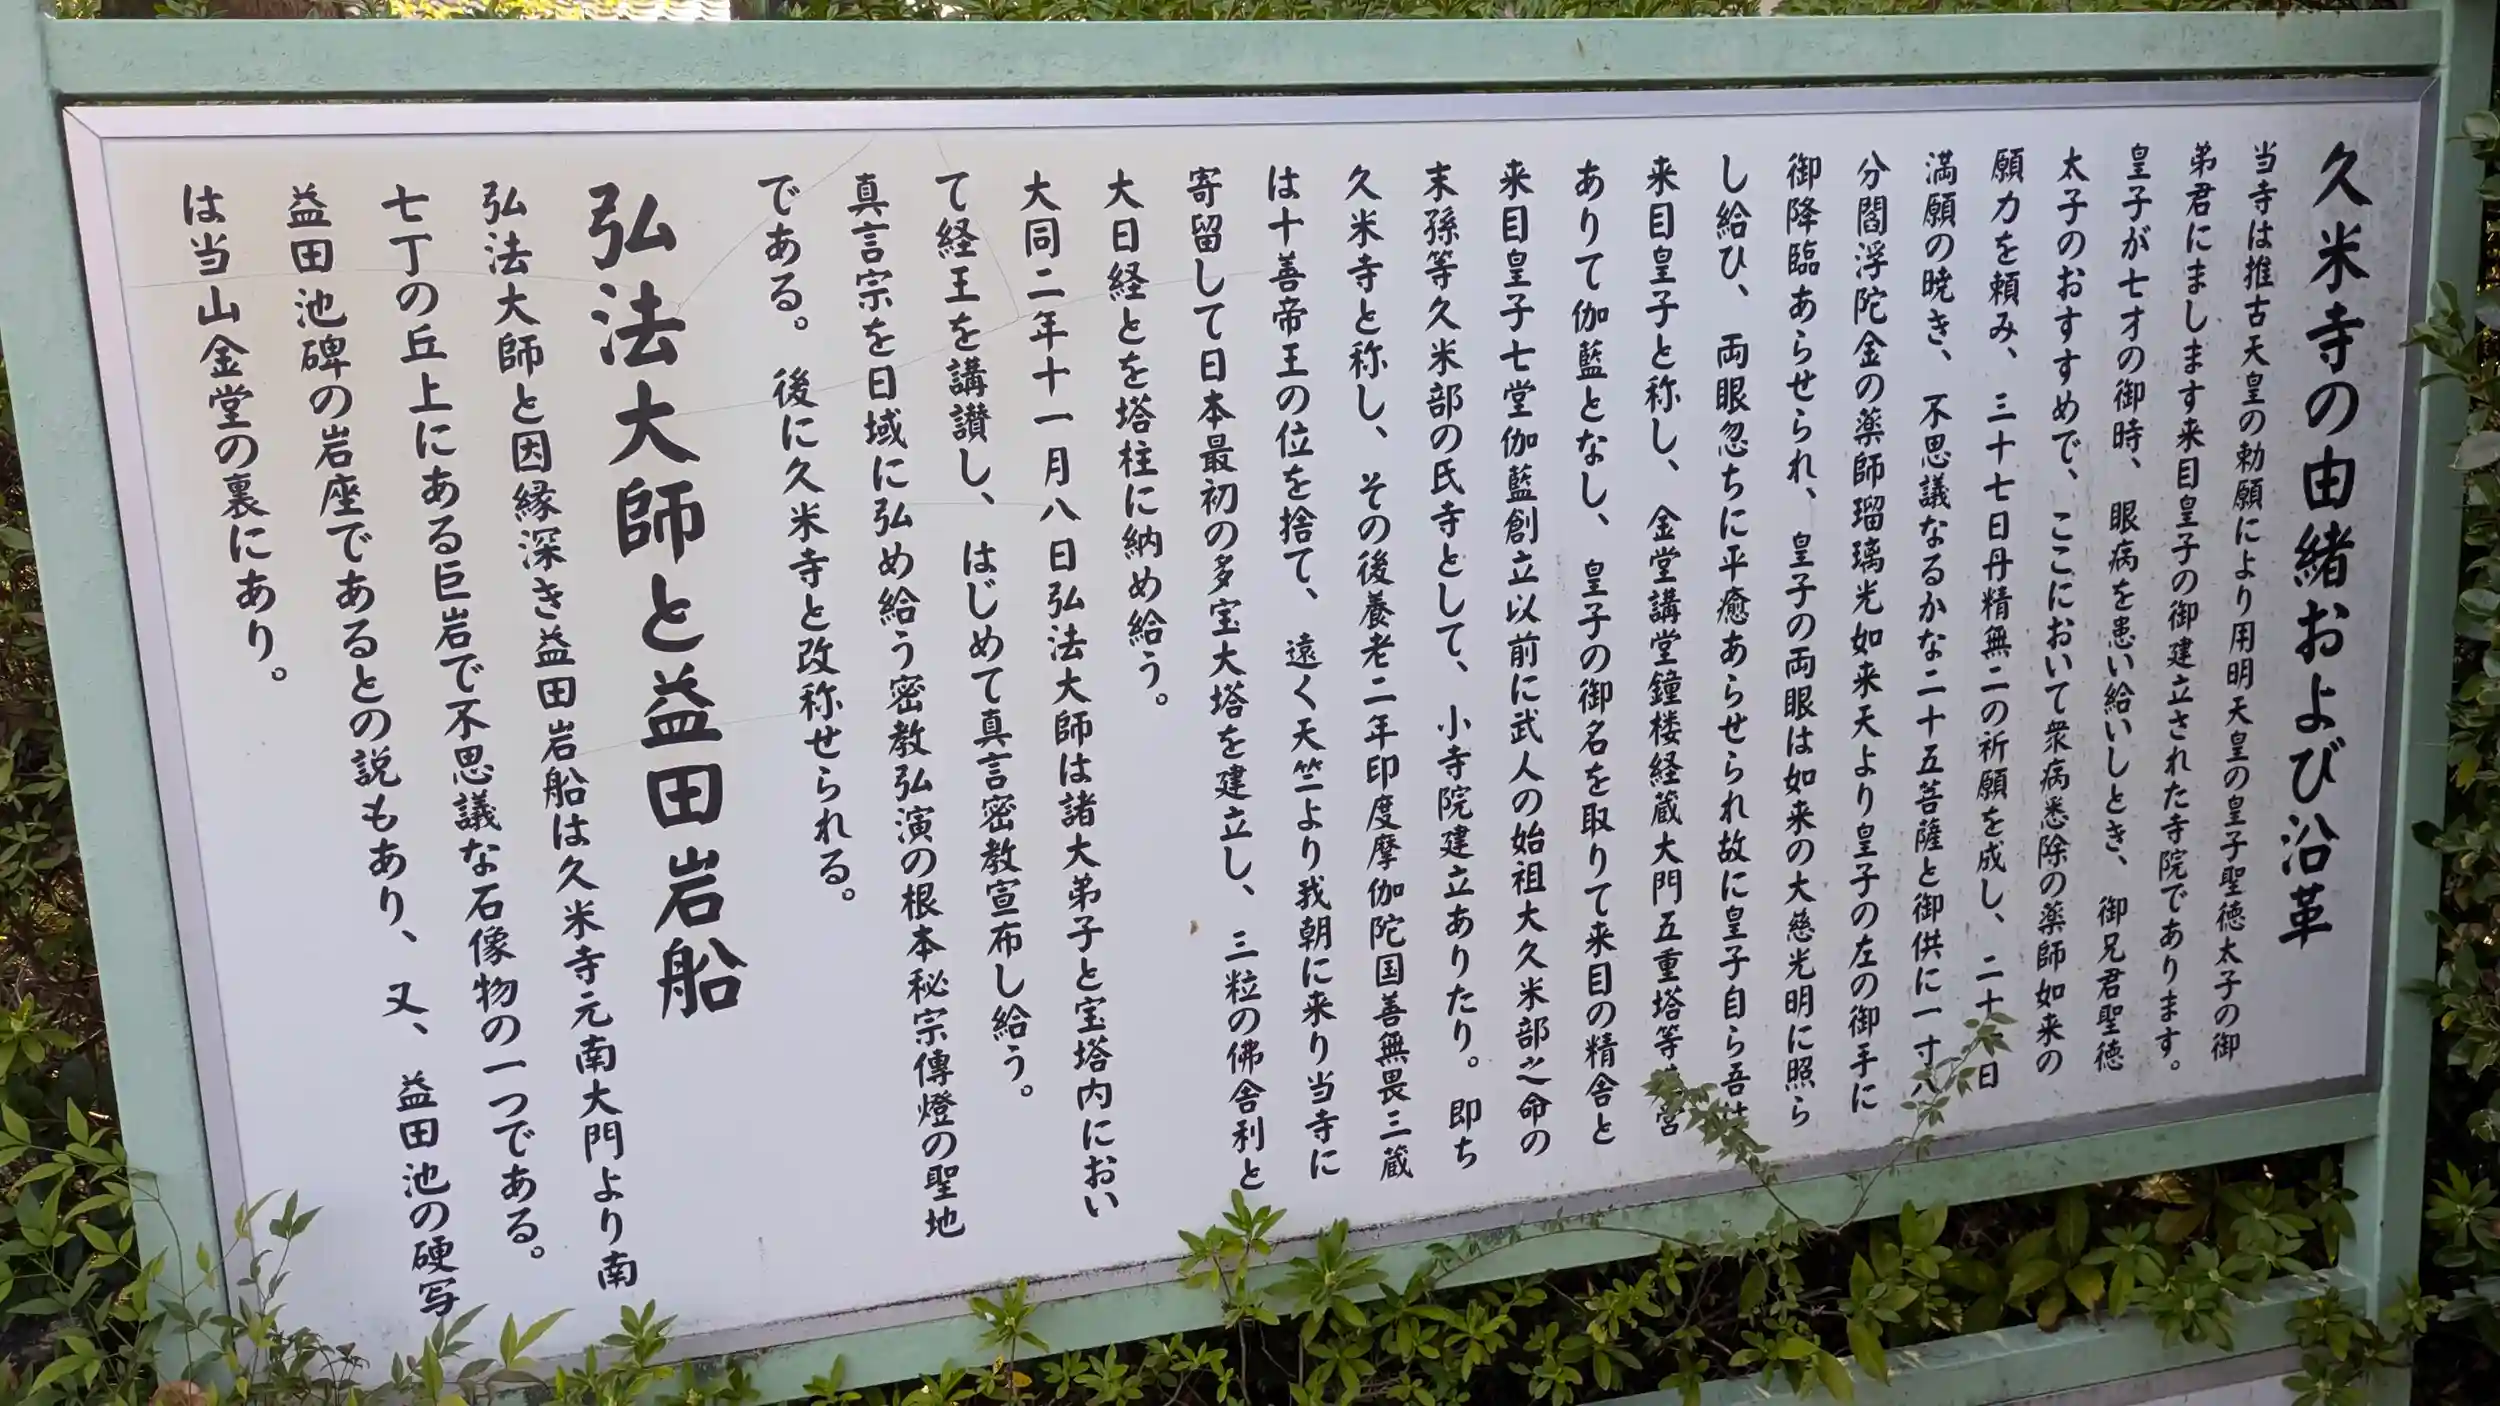 久米寺の由緒および沿革
当寺は推古天皇の勅願により用明天皇の皇子聖徳太子の御
弟君にまします来目皇子の御建立された寺院であります。
皇子が七才の御時、眼病を患い給いしとき、御兄君聖徳
太子のおすすめで、ここにおいて衆病悉除の薬師如来の
願力を頼み、三十七日丹精無二の祈願を成し、二十 日
満願の暁き、不思議なるかな二十五菩薩と御供に一寸八
分閻浮陀金の薬師瑠璃光如来天より皇子の左の御手に
御降臨あらせられ、皇子の両眼は如来の大慈光明に照ら
し給ひ、両眼忽ちに平癒あらせられ故に皇子自ら吾は
来目皇子と称し、金堂講堂鐘楼経蔵大門五重塔等 宮
ありて伽藍となし、皇子の御名を取りて来目の精舎と
来目皇子七堂伽藍創立以前に武人の始祖大久米部之命の
末孫等久米部の氏寺として、小寺院建立ありたり。即ち
久米寺と称し、その後養老二年印度摩伽陀国善無畏三蔵
は十善帝王の位を捨て、遠く天竺より我朝に来り当寺に
寄留して日本最初の多宝大塔を建立し、三粒の佛舎利と
大日経とを塔柱に納め給う。
大同二年十一月八日弘法大師は諸大弟子と宝塔内におい
て経王を講讃し、はじめて真言密教宣布し給う。
真言宗を日域に弘め給う密教弘演の根本秘宗傳燈の聖地
である。後に久米寺と改称せられる。
弘法大師と益田岩船
弘法大師と因縁深き益田岩船は久米寺元南大門より南
七丁の丘上にある巨岩で不思議な石像物の一つである。
益田池碑の岩座であるとの説もあり、又、益田池の硬写
は当山金堂の裏にあり。